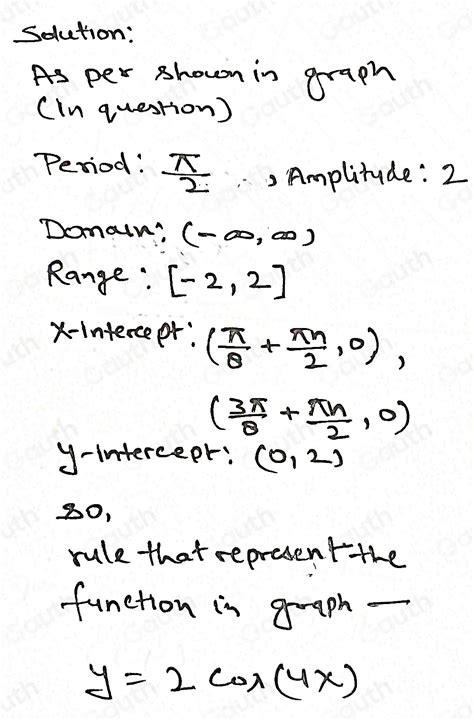 Solution:
As per shown in graph
(In question)
Period: π/2 , Amplitude: 2
Domain: (-∞, ∞)
Range: [-2, 2]
x-Intercept: (π/8 + πn/2, 0),
(3π/8 + πn/2, 0)
y-intercept: (0, 2)
so,
rule that represent the
function in graph —
y = 2 cos(4x)